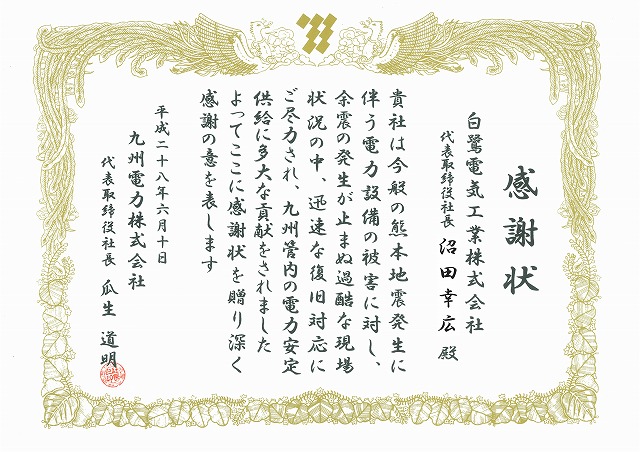 感謝状
白鷺電気工業株式会社
代表取締役社長 沼田幸広 殿
貴社は今般の熊本地震発生に
伴う電力設備の被害に対し、
余震の発生が止まぬ過酷な現場
状況の中、迅速な復旧対応に
ご尽力され、九州管内の電力安定
供給に多大な貢献をされました
よってここに感謝状を贈り深く
感謝の意を表します
平成二十八年六月十日
九州電力株式会社
代表取締役社長 瓜生 道明